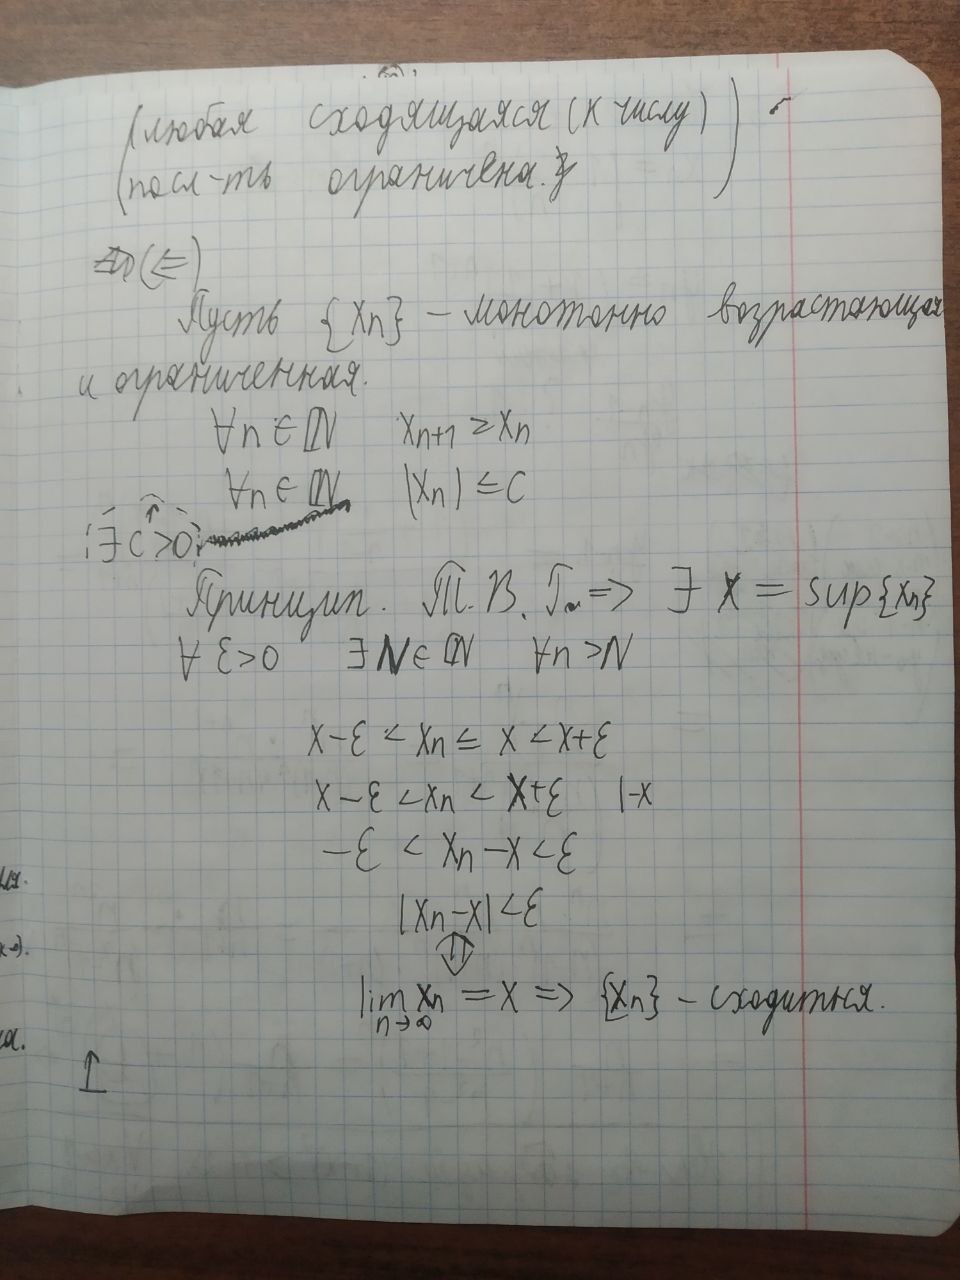 (любая сходящаяся (к числу)
посл-ть ограничена.)
(<=)
Пусть {xn} - монотонно возрастающая
и ограниченная.
∀n ∈ ℕ xn+1 ≥ xn
∀n ∈ ℕ |xn| ≤ C
∃ C > 0
Принцип. Т. В. Г. => ∃ x = sup{xn}
∀ ε>0 ∃ N ∈ ℕ ∀n > N
x-ε < xn ≤ x < x+ε
x-ε < xn < x+ε |-x
-ε < xn -x < ε
|xn-x| < ε
⇓
lim xn = x => {xn} - сходиться.
n→∞